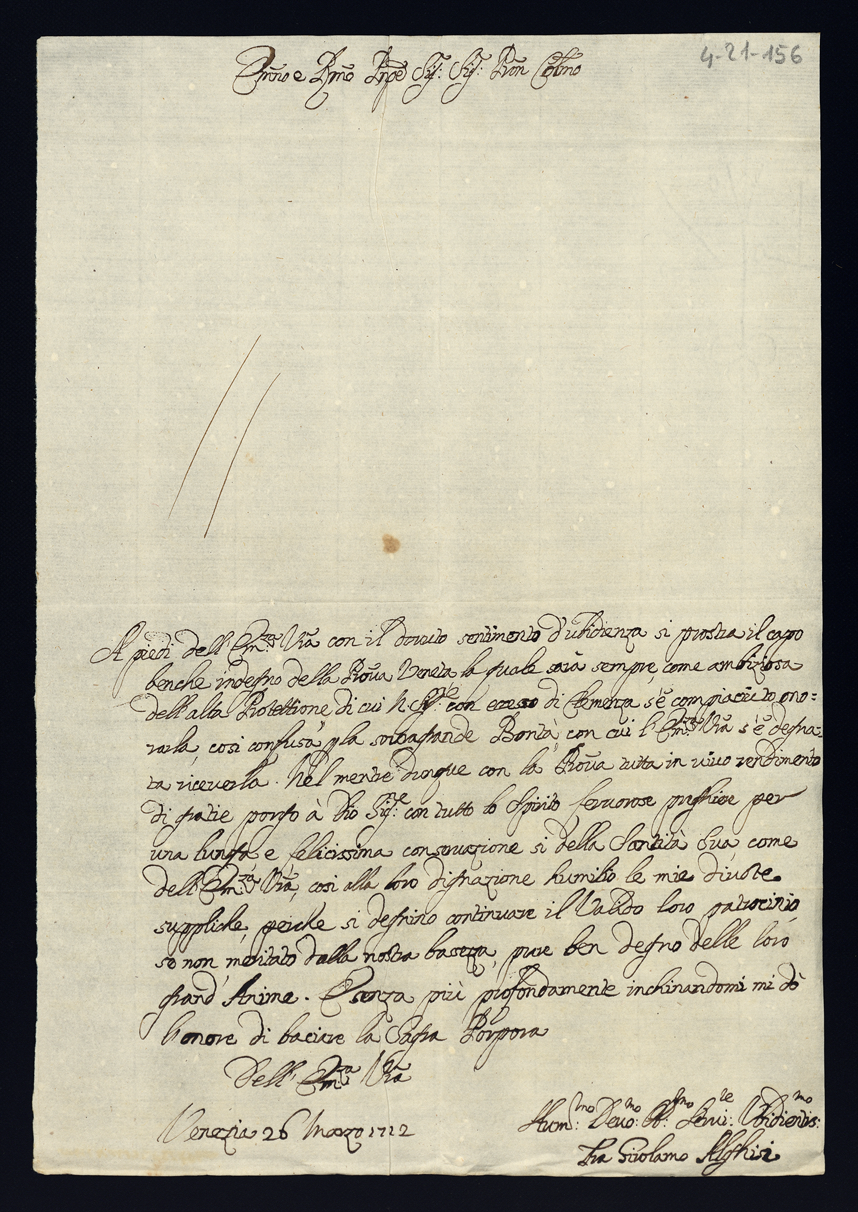 4-21-156
Em̃o e Rm̃o Prñpe Sig.r Sig.r Pron Colm̃o
A piedi dell' Em.za Vr̃a con il dovuto sentimento d'ubidienza si prostra il capo
benche indegno della Prou̅a Veneta la quale sarà sempre, come ambiziosa
dell'alta Protettione di cui N. Sig.re con ecesso di Clemenza s'è compiacciuto ono=
rarla, così confusa p la sopragrande Bontà, con cui l'Em.za Vr̃a s'è degna=
ta riceverla. Nel mentre dunque con la Prou̅a tutta in vivo rendimento
di gratie porgo à Dio Sig.re con tutto lo Spirito fervorose preghiere per
una lunga e felicissima conservazione si della Santità Sua, come
dell'Em.za Vr̃a, così alla loro dignazione humilio le mie divote
suppliche, perche si degnino continuare il Valido loro patrocinio,
se non meritato dalla nostra bassezza, pure ben degno delle loro
grand'Anime. E senza più profondamente inchinandomi mi dò
l'onore di baciare la Sagra Porpora
Dell'Em.za Vr̃a
Venezia 26 Marzo 1712
Hum.mo Devo.mo Serui.re Vbidientis.mo
Fra Girolamo Alghisi